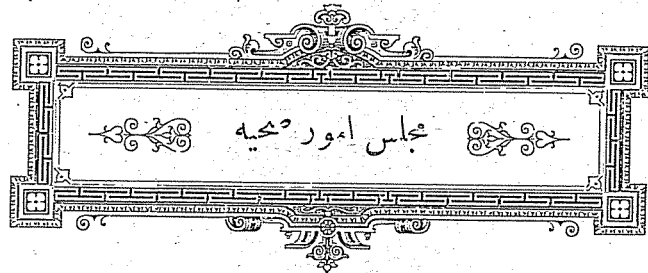 مجلس امور صحیه